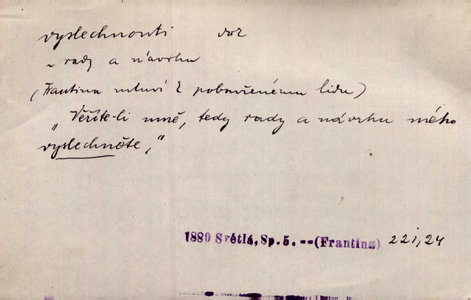 vyslechnouti dok
~ rady a návrhu
(Frantina mluví k pobouřenému lidu)
„Věříte-li mně, tedy rady a návrhu mého
vyslechněte,“
1880 Světlá, Sp. 5. --(Frantina) 221,24